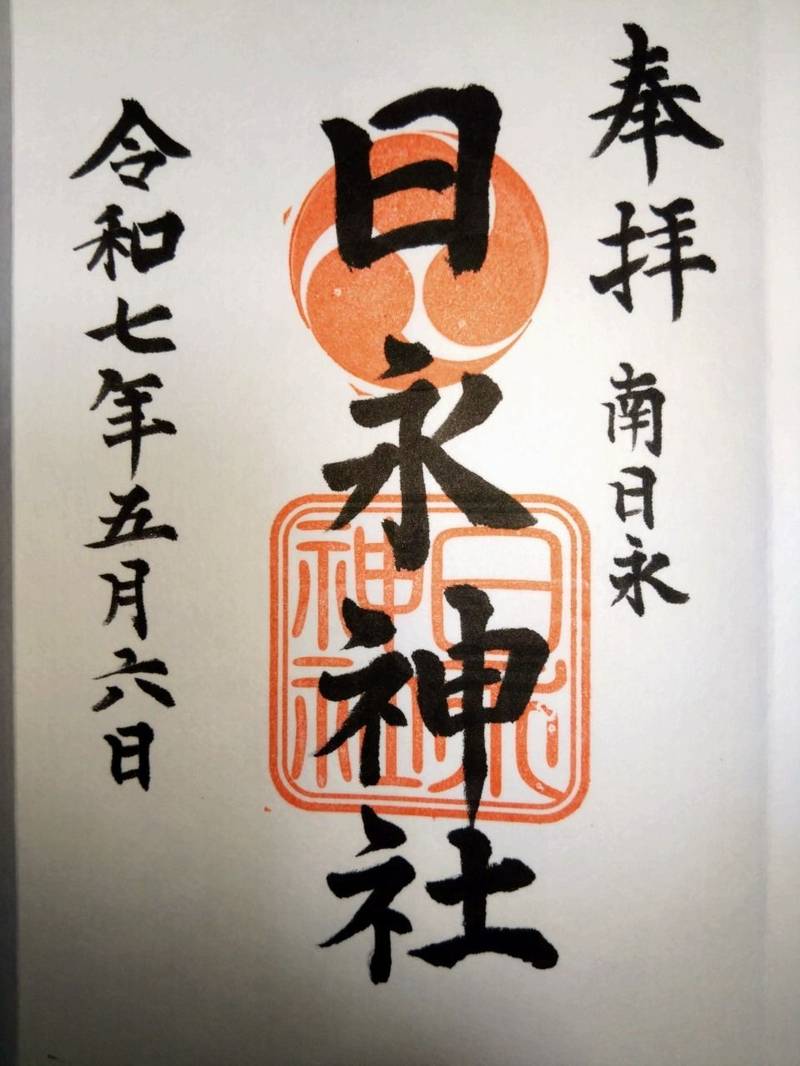 奉拝 南日永
日永神社
令和七年五月六日
日永
神社